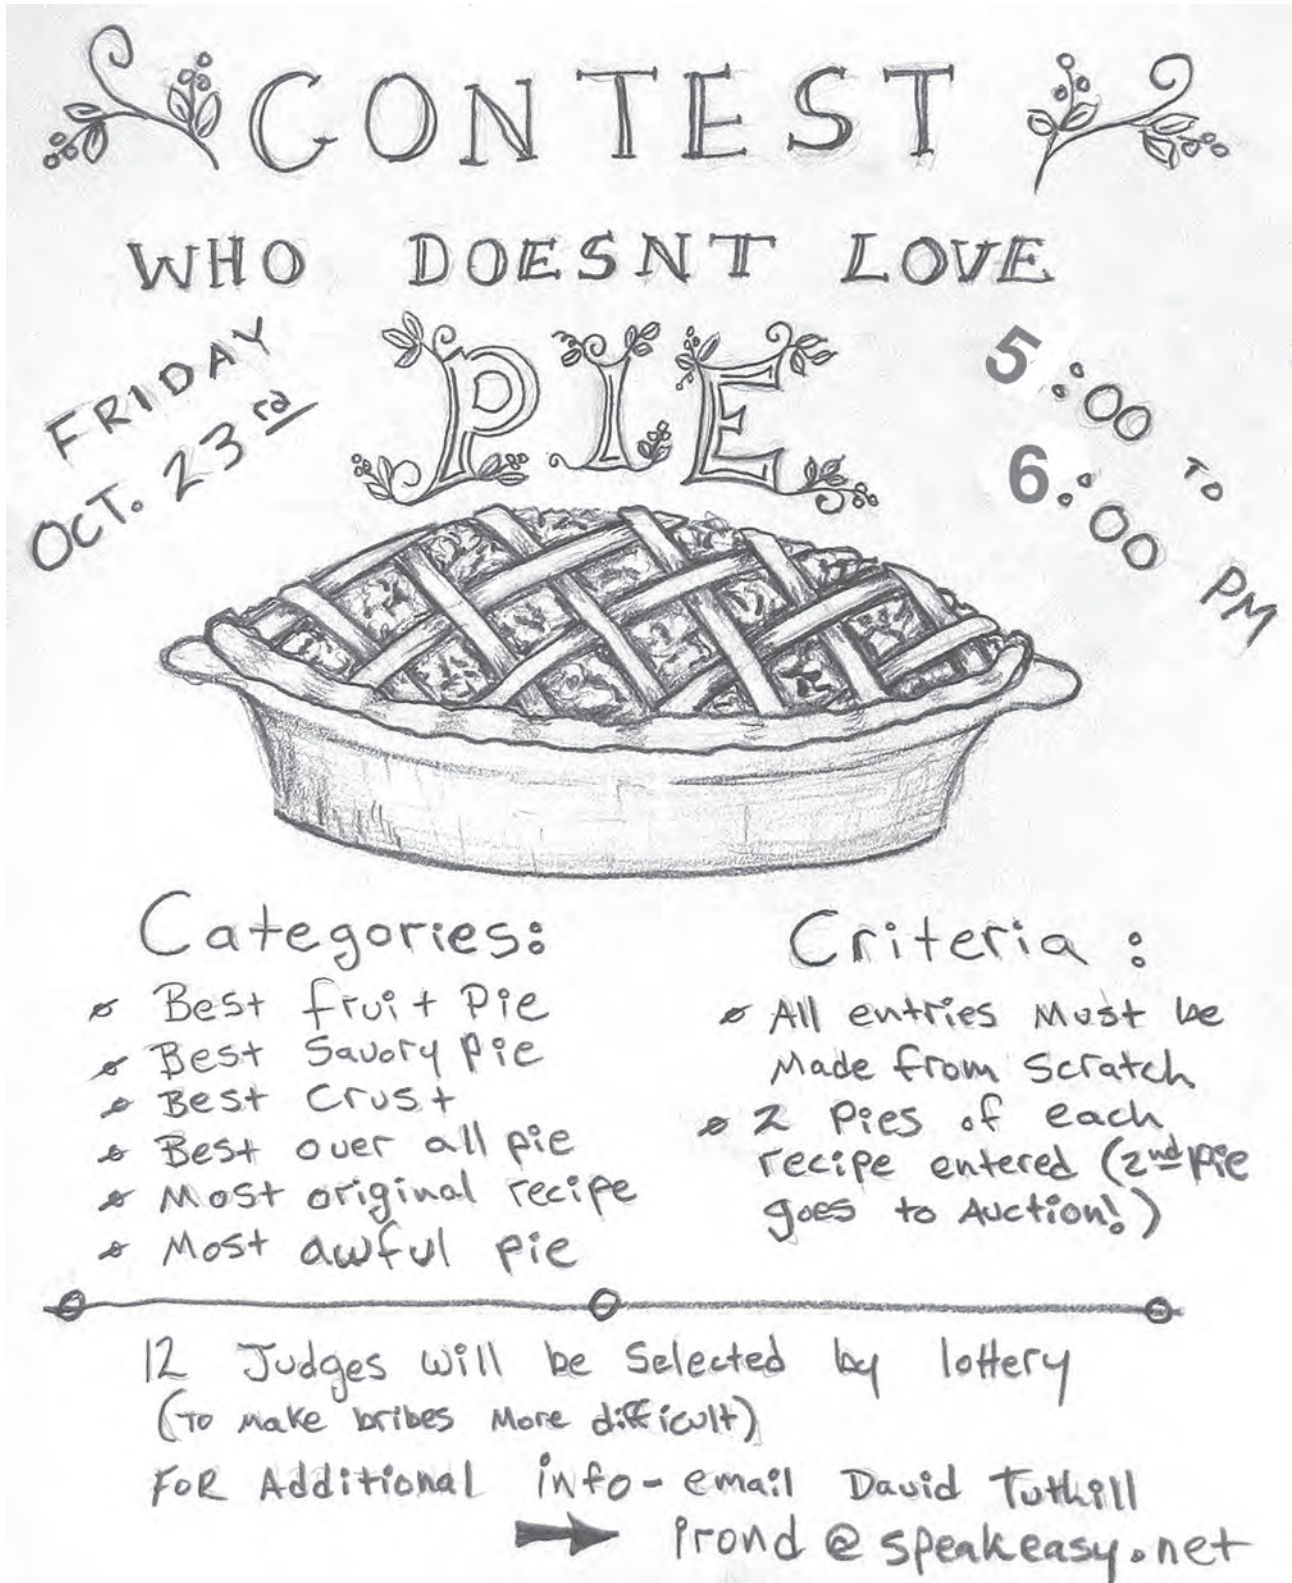 CONTEST
WHO DOESNT LOVE
PIE
FRIDAY
OCT. 23rd
5:00 TO
6:00 PM
Categories:
Best fruit Pie
Best Savory Pie
Best Crust
Best over all pie
Most original recipe
Most awful pie
Criteria:
All entries Must be
Made from Scratch
2 Pies of each
recipe entered (2nd Pie
goes to Auction!)
12 Judges will be Selected by lottery
(To make bribes More difficult)
FOR Additional info-email David Tuthill
Prond@speakeasy.net